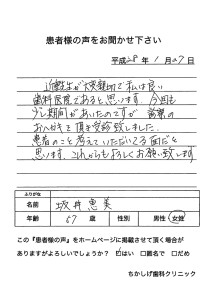 患者様の声をお聞かせ下さい
平成28年1月27日
近重先生が大変親切で私は良い
歯科医院であると思います。今回も
少し期間があいたのですが
おハガキを頂き受診致しました。
患者のことを考えていただいてる歯医者だと
思います。これからもよろしくお願い致します
ふりがな
名前 坂井恵美
年齢 67歳 性別 男性 女性
この『患者様の声』をホームページに掲載させて頂く場合が
ありますがよろしいでしょうか? ☑はい □匿名で □だめ
ちかしげ歯科クリニック